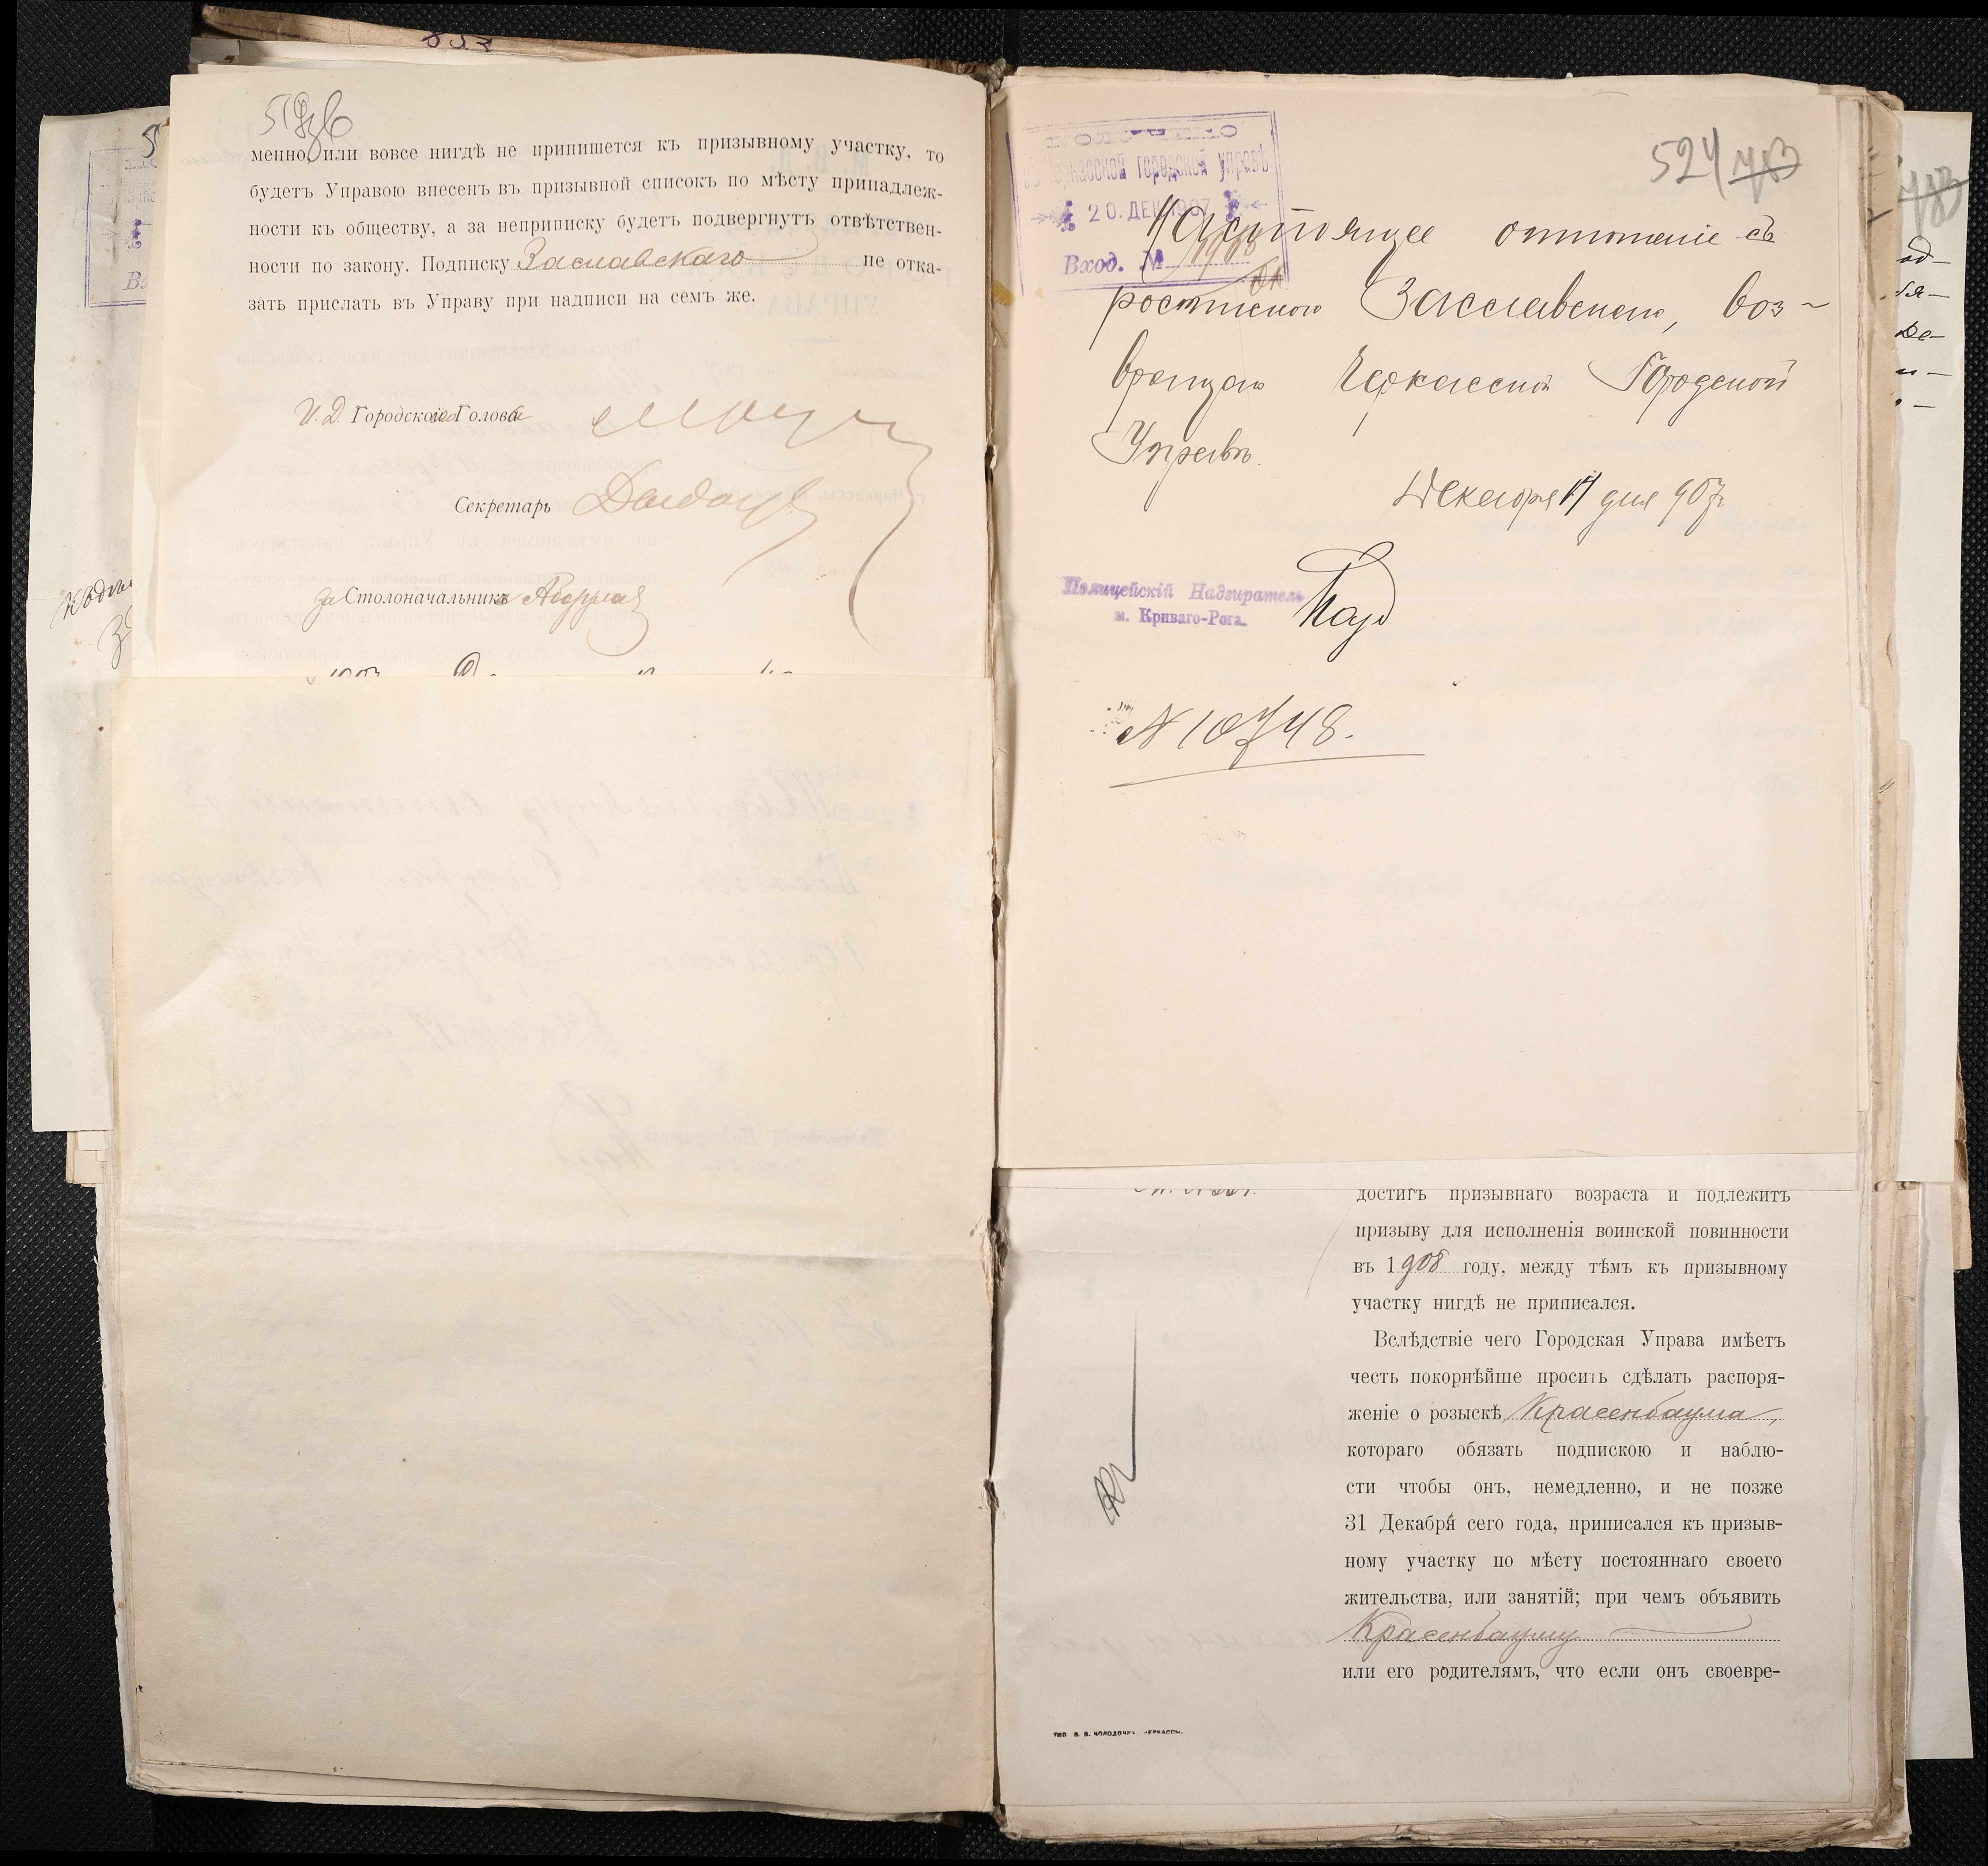 менно или вовсе нигдѣ не припишется къ призывному участку, то
будетъ Управою внесенъ въ призывной списокъ по мѣсту принадлеж-
ности къ обществу, а за неприписку будетъ подвергнутъ отвѣтствен-
ности по закону. Подписку Заславскаго не отка-
зать прислать въ Управу при надписи на семъ же.
И. Д. Городского Головы
Секретарь
За Столоначальника
524
въ Черкасской городской управѣ
20. ДЕК 1907
Вход. №
Настоящее отношеніе съ
роспискою Заславскаго, воз-
вращаю Черкасской Городской
Управѣ.
Декабря 17 дня 907г
Полицейскій Надзиратель
м. Криваго-Рога.
№ 10748.
достигъ призывнаго возраста и подлежитъ
призыву для исполненія воинской повинности
въ 1908 году, между тѣмъ къ призывному
участку нигдѣ не приписался.
Вслѣдствіе чего Городская Управа имѣетъ
честь покорнѣйше просить сдѣлать распоря-
женіе о розыскѣ Красенбаума,
котораго обязать подпискою и наблю-
сти чтобы онъ, немедленно, и не позже
31 Декабря сего года, приписался къ призыв-
ному участку по мѣсту постояннаго своего
жительства, или занятій; при чемъ объявить
Красенбауму
или его родителямъ, что если онъ своевре-